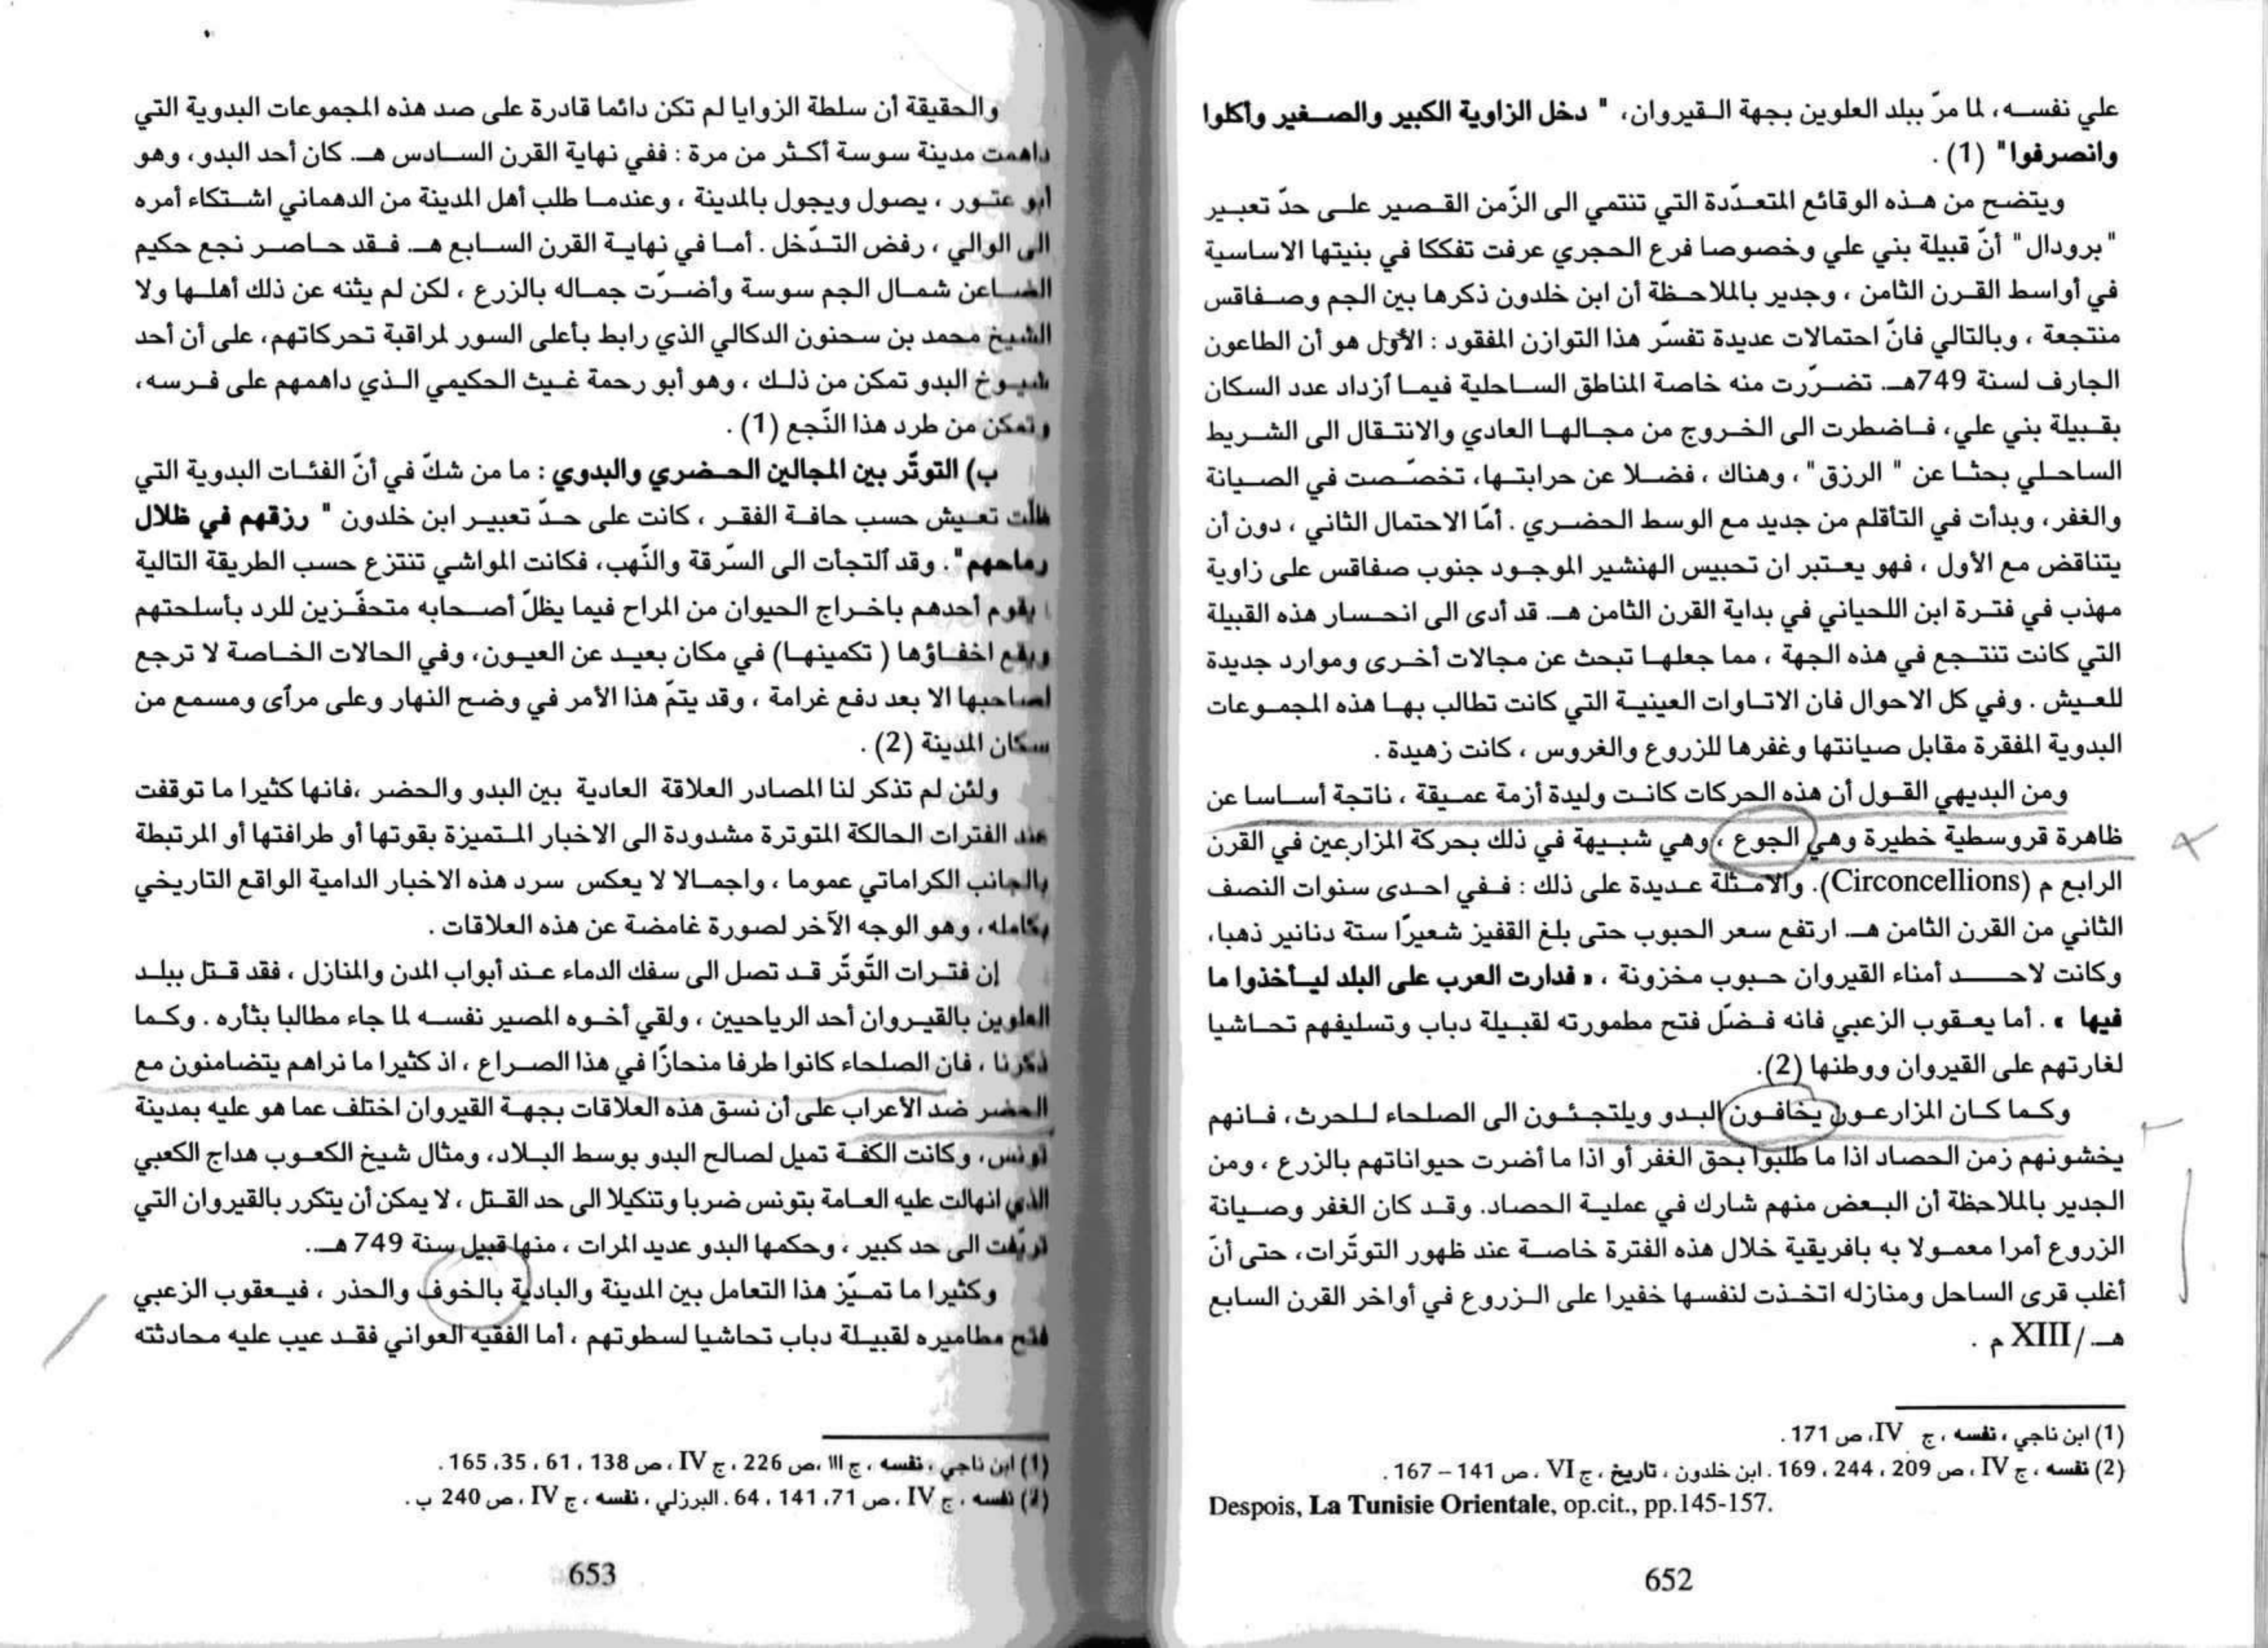 علي نفسه، لما مرّ ببلد العلوين بجهة القيروان، " دخل الزاوية الكبير والصغير وأكلوا
وانصرفوا" (1) .
ويتضح من هذه الوقائع المتعدّدة التي تنتمي الى الزّمن القصير على حدّ تعبير
"برودال" أنّ قبيلة بني علي وخصوصا فرع الحجري عرفت تفككا في بنيتها الاساسية
في أواسط القرن الثامن ، وجدير بالملاحظة أن ابن خلدون ذكرها بين الجم وصفاقس
منتجعة ، وبالتالي فانّ احتمالات عديدة تفسّر هذا التوازن المفقود : الأوّل هو أن الطاعون
الجارف لسنة 749هـ. تضرّرت منه خاصة المناطق الساحلية فيما آزداد عدد السكان
بقبيلة بني علي، فاضطرت الى الخروج من مجالها العادي والانتقال الى الشريط
الساحلي بحثا عن " الرزق"، وهناك ، فضلا عن حرابتها، تخصّصت في الصيانة
والغفر، وبدأت في التأقلم من جديد مع الوسط الحضري . أمّا الاحتمال الثاني ، دون أن
يتناقض مع الأول ، فهو يعتبر ان تحبيس الهنشير الموجود جنوب صفاقس على زاوية
مهذب في فترة ابن اللحياني في بداية القرن الثامن هـ. قد أدى الى انحسار هذه القبيلة
التي كانت تنتجع في هذه الجهة ، مما جعلها تبحث عن مجالات أخرى وموارد جديدة
للعيش . وفي كل الاحوال فان الاتاوات العينية التي كانت تطالب بها هذه المجموعات
البدوية المفقرة مقابل صيانتها وغفرها للزروع والغروس ، كانت زهيدة .
ومن البديهي القول أن هذه الحركات كانت وليدة أزمة عميقة ، ناتجة أساسا عن
ظاهرة قروسطية خطيرة وهي الجوع ، وهي شبيهة في ذلك بحركة المزارعين في القرن
الرابع م (Circoncellions). والامثلة عديدة على ذلك : ففي احدى سنوات النصف
الثاني من القرن الثامن هـ. ارتفع سعر الحبوب حتى بلغ القفيز شعيرًا ستة دنانير ذهبا،
وكانت لاحد أمناء القيروان حبوب مخزونة ، « فدارت العرب على البلد ليأخذوا ما
فيها » . أما يعقوب الزعبي فانه فضّل فتح مطمورته لقبيلة دباب وتسليفهم تحاشيا
لغارتهم على القيروان ووطنها (2).
وكما كان المزارعون يخافون البدو ويلتجئون الى الصلحاء للحرث، فانهم
يخشونهم زمن الحصاد اذا ما طلبوا بحق الغفر أو اذا ما أضرت حيواناتهم بالزرع ، ومن
الجدير بالملاحظة أن البعض منهم شارك في عملية الحصاد. وقد كان الغفر وصيانة
الزروع أمرا معمولا به بافريقية خلال هذه الفترة خاصة عند ظهور التوتّرات، حتى أنّ
أغلب قرى الساحل ومنازله اتخذت لنفسها خفيرا على الزروع في أواخر القرن السابع
هـ./XIII م .
(1) ابن ناجي ، نفسه ، ج IV، ص 171 .
(2) نفسه ، ج IV ، ص 209 ، 244 ، 169 . ابن خلدون ، تاريخ ، ج VI ، ص 141 – 167 .
Despois, La Tunisie Orientale, op.cit., pp.145-157.
652
والحقيقة أن سلطة الزوايا لم تكن دائما قادرة على صد هذه المجموعات البدوية التي
داهمت مدينة سوسة أكثر من مرة : ففي نهاية القرن السادس هـ. كان أحد البدو، وهو
أبو عتور ، يصول ويجول بالمدينة ، وعندما طلب أهل المدينة من الدهماني اشتكاء أمره
الى الوالي ، رفض التدّخل . أما في نهاية القرن السابع هـ. فقد حاصر نجع حكيم
الضاعن شمال الجم سوسة وأضرّت جماله بالزرع ، لكن لم يثنه عن ذلك أهلها ولا
الشيخ محمد بن سحنون الدكالي الذي رابط بأعلى السور لمراقبة تحركاتهم، على أن أحد
شيوخ البدو تمكن من ذلك ، وهو أبو رحمة غيث الحكيمي الذي داهمهم على فرسه،
وتمكن من طرد هذا النّجع (1) .
ب) التوتّر بين المجالين الحضري والبدوي : ما من شكّ في أنّ الفئات البدوية التي
ظلّت تعيش حسب حافة الفقر ، كانت على حدّ تعبير ابن خلدون " رزقهم في ظلال
رماحهم" . وقد آلتجأت الى السّرقة والنّهب، فكانت المواشي تنتزع حسب الطريقة التالية
: يقوم أحدهم باخراج الحيوان من المراح فيما يظلّ أصحابه متحفّزين للرد بأسلحتهم
ويقع اخفاؤها ( تكمينها) في مكان بعيد عن العيون، وفي الحالات الخاصة لا ترجع
لصاحبها الا بعد دفع غرامة ، وقد يتمّ هذا الأمر في وضح النهار وعلى مرآى ومسمع من
سكان المدينة (2) .
ولئن لم تذكر لنا المصادر العلاقة العادية بين البدو والحضر ،فانها كثيرا ما توقفت
عند الفترات الحالكة المتوترة مشدودة الى الاخبار المتميزة بقوتها أو طرافتها أو المرتبطة
بالجانب الكراماتي عموما ، واجمالا لا يعكس سرد هذه الاخبار الدامية الواقع التاريخي
بكامله، وهو الوجه الآخر لصورة غامضة عن هذه العلاقات .
إن فترات التّوتّر قد تصل الى سفك الدماء عند أبواب المدن والمنازل ، فقد قتل ببلد
العلوين بالقيروان أحد الرياحيين ، ولقي أخوه المصير نفسه لما جاء مطالبا بثأره . وكما
ذكرنا ، فان الصلحاء كانوا طرفا منحازًا في هذا الصراع ، اذ كثيرا ما نراهم يتضامنون مع
الحضر ضد الأعراب على أن نسق هذه العلاقات بجهة القيروان اختلف عما هو عليه بمدينة
تونس، وكانت الكفة تميل لصالح البدو بوسط البلاد، ومثال شيخ الكعوب هداج الكعبي
الذي انهالت عليه العامة بتونس ضربا وتنكيلا الى حد القتل ، لا يمكن أن يتكرر بالقيروان التي
تريّفت الى حد كبير ، وحكمها البدو عديد المرات ، منها قبيل سنة 749 هـ..
وكثيرا ما تميّز هذا التعامل بين المدينة والبادية بالخوف والحذر ، فيعقوب الزعبي
فتح مطاميره لقبيلة دباب تحاشيا لسطوتهم ، أما الفقيه العواني فقد عيب عليه محادثته
(1) ابن ناجي ، نفسه ، ج III ،ص 226 ، ج IV ، ص 138 ، 61 ، 35، 165 .
(2) نفسه ، ج IV ، ص 71، 141 ، 64 . البرزلي ، نفسه ، ج IV ، ص 240 ب .
653